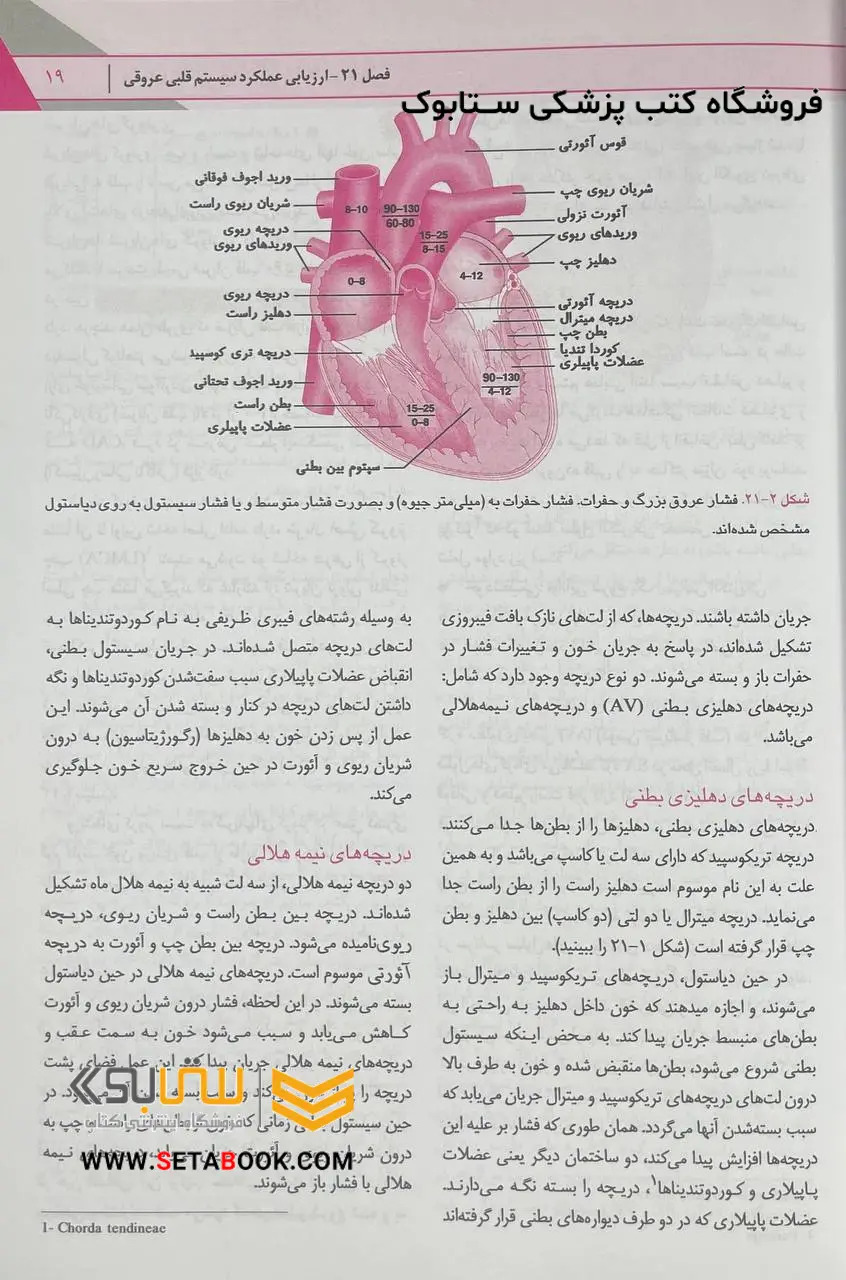 فصل ۲۱- ارزیابی عملکرد سیستم قلبی عروقی | ۱۹
فروشگاه کتب پزشکی ستابوک
قوس آئورتی
ورید اجوف فوقانی
شریان ریوی چپ
شریان ریوی راست
آئورت نزولی
دریچه ریوی
وریدهای ریوی
وریدهای ریوی
دهلیز چپ
دریچه ریوی
دریچه آئورتی
دهلیز راست
دریچه میترال
بطن چپ
دریچه تری کوسپید
کوردا تندیا
عضلات پاپیلری
ورید اجوف تحتانی
بطن راست
عضلات پاپیلری
سپتوم بین بطنی
8–10
90–130
60-80
15–25
8–15
4–12
0–8
90–130
4–12
15–25
0–8
شکل ۲-۲۱. فشار عروق بزرگ و حفرات. فشار حفرات به (میلی‌متر جیوه) و بصورت فشار متوسط و یا فشار سیستول به روی دیاستول
مشخص شده‌اند.
جریان داشته باشند. دریچه‌ها، که از لت‌های نازک بافت فیبروزی
تشکیل شده‌اند، در پاسخ به جریان خون و تغییرات فشار در
حفرات باز و بسته می‌شوند. دو نوع دریچه وجود دارد که شامل:
دریچه‌های دهلیزی بطنی (AV) و دریچه‌های نیمه‌هلالی
می‌باشد.
دریچه‌های دهلیزی بطنی
دریچه‌های دهلیزی بطنی، دهلیزها را از بطن‌ها جدا می‌کنند.
دریچه تریکوسپید که دارای سه لت یا کاسپ می‌باشد و به همین
علت به این نام موسوم است دهلیز راست را از بطن راست جدا
می‌نماید. دریچه میترال یا دو لتی (دو کاسپ) بین دهلیز و بطن
چپ قرار گرفته است (شکل ۱-۲۱ را ببینید).
در حین دیاستول، دریچه‌های تریکوسپید و میترال باز
می‌شوند، و اجازه میدهند که خون داخل دهلیز به راحتی به
بطن‌های منبسط جریان پیدا کند. به محض اینکه سیستول
بطنی شروع می‌شود، بطن‌ها منقبض شده و خون به طرف بالا
درون لت‌های دریچه‌های تریکوسپید و میترال جریان می‌یابد که
سبب بسته‌شدن آنها می‌گردد. همان طوری که فشار بر علیه این
دریچه‌ها افزایش پیدا می‌کند، دو ساختمان دیگر یعنی عضلات
پاپیلاری و کوردوتندیناها۱، دریچه را بسته نگه می‌دارند.
عضلات پاپیلاری که در دو طرف دیواره‌های بطنی قرار گرفته‌اند
به وسیله رشته‌های فیبری ظریفی به نام کوردوتندیناها به
لت‌های دریچه متصل شده‌اند. در جریان سیستول بطنی،
انقباض عضلات پاپیلاری سبب سفت‌شدن کوردوتندیناها و نگه
داشتن لت‌های دریچه در کنار و بسته شدن آن می‌شوند. این
عمل از پس زدن خون به دهلیزها (رگورژیتاسیون) به درون
شریان ریوی و آئورت در حین خروج سریع خون جلوگیری
می‌کند.
دریچه‌های نیمه هلالی
دو دریچه نیمه هلالی، از سه لت شبیه به نیمه هلال ماه تشکیل
شده‌اند. دریچه بین بطن راست و شریان ریوی، دریچه
ریوی‌نامیده می‌شود. دریچه بین بطن چپ و آئورت به دریچه
آئورتی موسوم است. دریچه‌های نیمه هلالی در حین دیاستول
بسته می‌شوند. در این لحظه، فشار درون شریان ریوی و آئورت
کاهش می‌یابد و سبب می‌شود خون به سمت عقب و
دریچه‌های نیمه هلالی جریان پیدا کند. این عمل فضای پشت
دریچه را در
حین سیستول زمانی که چپ به
درون شریان نیمه
هلالی با فشار باز می‌شوند.
ستابوک
فروشگاه اینترنتی کتاب
WWW.SETABOOK.COM
1- Chorda tendineae